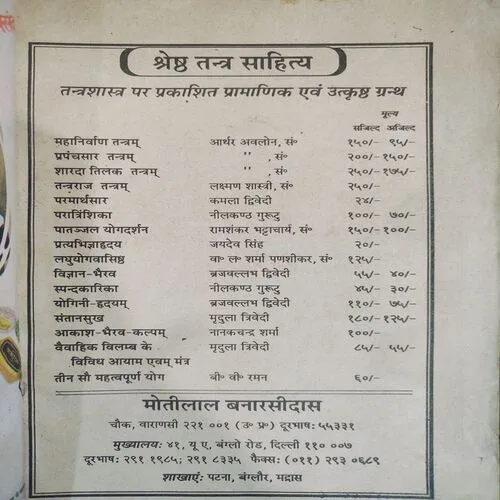 श्रेष्ठ तन्त्र साहित्य
तन्त्रशास्त्र पर प्रकाशित प्रामाणिक एवं उत्कृष्ठ ग्रन्थ
मूल्य
सजिल्द अजिल्द
महानिर्वाण तन्त्रम् आर्थर अवलोन, सं० १५०/– ९५/–
प्रपंचसार तन्त्रम् '' , सं० २००/–१५०/–
शारदा तिलक तन्त्रम् '' , सं० २५०/–१७५/–
तन्त्रराज तन्त्रम् लक्ष्मण शास्त्री, सं० २५०/–
परमार्थसार कमला द्विवेदी २४/–
परात्रिंशिका नीलकण्ठ गुरूटु १००/– ७०/–
पातञ्जल योगदर्शन रामशंकर भट्टाचार्य, सं० १५०/–१००/–
प्रत्यभिज्ञाहृदय जयदेव सिंह २०/–
लघुयोगवासिष्ठ वा० ल० शर्मा पणशीकर, सं० १२५/–
विज्ञान-भैरव ब्रजवल्लभ द्विवेदी ५५/– ४०/–
स्पन्दकारिका नीलकण्ठ गुरूटु ४५/– ३०/–
योगिनी-हृदयम् ब्रजवल्लभ द्विवेदी ११०/– ७५/–
संतानसुख मृदुला त्रिवेदी १८०/–१२५/–
आकाश-भैरव-कल्पम् नानकचन्द्र शर्मा १००/–
वैवाहिक विलम्ब के मृदुला त्रिवेदी ८५/– ५५/–
विविध आयाम एवम् मंत्र
तीन सौ महत्वपूर्ण योग बी० वी० रमन ६०/–
मोतीलाल बनारसीदास
चौक, वाराणसी 221 001 (उ० प्र०) दूरभाष: ५५३३१
मुख्यालय: ४१, यू ए, बंग्लो रोड, दिल्ली ११० ००७
दूरभाष: २९१ १९८५; २९१ ८३३५ फैक्स: (०११) २९३ ०६८९
शाखाएं: पटना, बंग्लौर, मद्रास